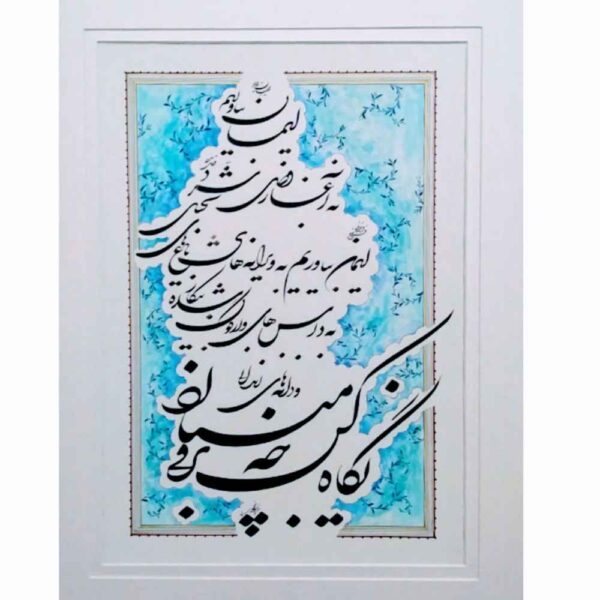 ایمان بیاوریم
به آغاز
ایمان بیاوریم به ویرانه های باغ های تخیل
به داس های واژگون شده بیکار
و دانه های زندانی
نگاه کن چه برفی میبارد